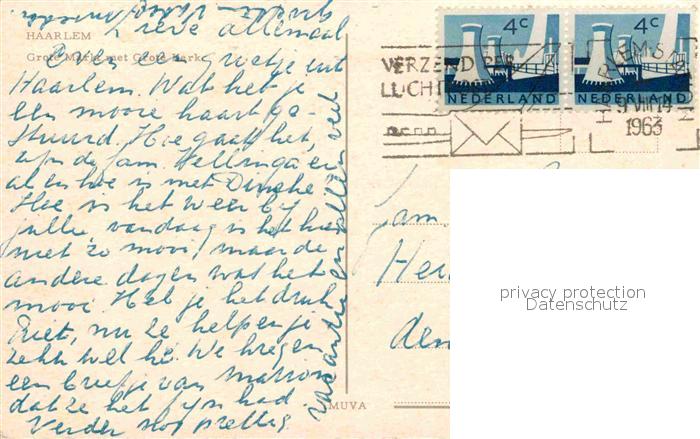 HAARLEM
Grote Markt met Grote Kerk
lieve allemaal
Even een groetje uit
Haarlem. Wat heb je
een mooie kaart ge-
stuurd. Hoe gaat het,
zijn de fam. Hellinga er
al en hoe is met Dineke
Hoe is het weer bij
jullie vandaag is het hier
niet zo mooi, maar de
andere dagen was het
mooi. Heb je het druk
Riet, nu ze helpen je
zeker wel hè. We kregen
een briefje van
dat ze het fijn had.
Verder nog prettig
vacantie en allen veel
MUVA
4c
NEDERLAND
4c
NEDERLAND
VERZEND PER
LUCHT
9 VIII 14
1963
Fam.
den
privacy protection
Datenschutz